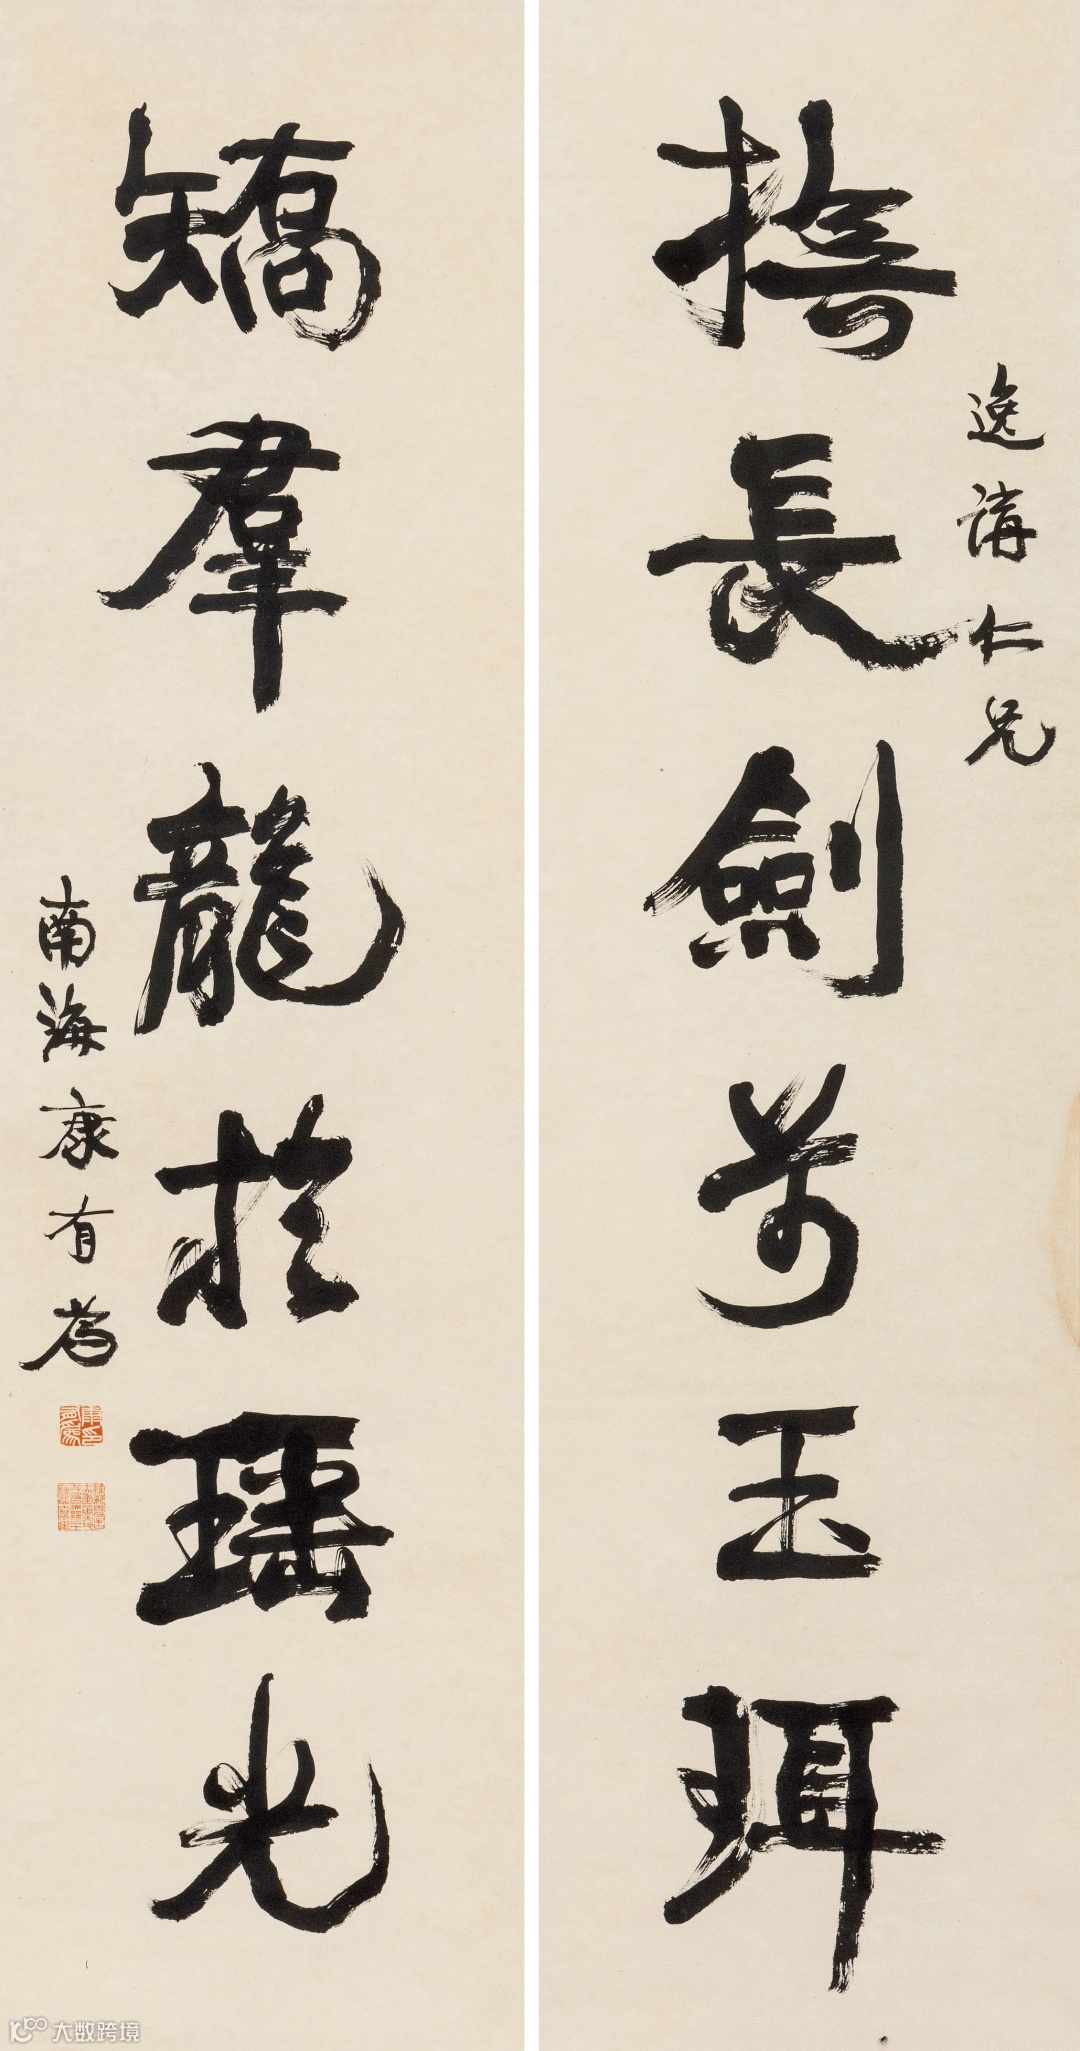 逸講仁兄
撫長劍兮玉珥
矯羣龍於瑤光
南海康有為
康有為印
大数跨境